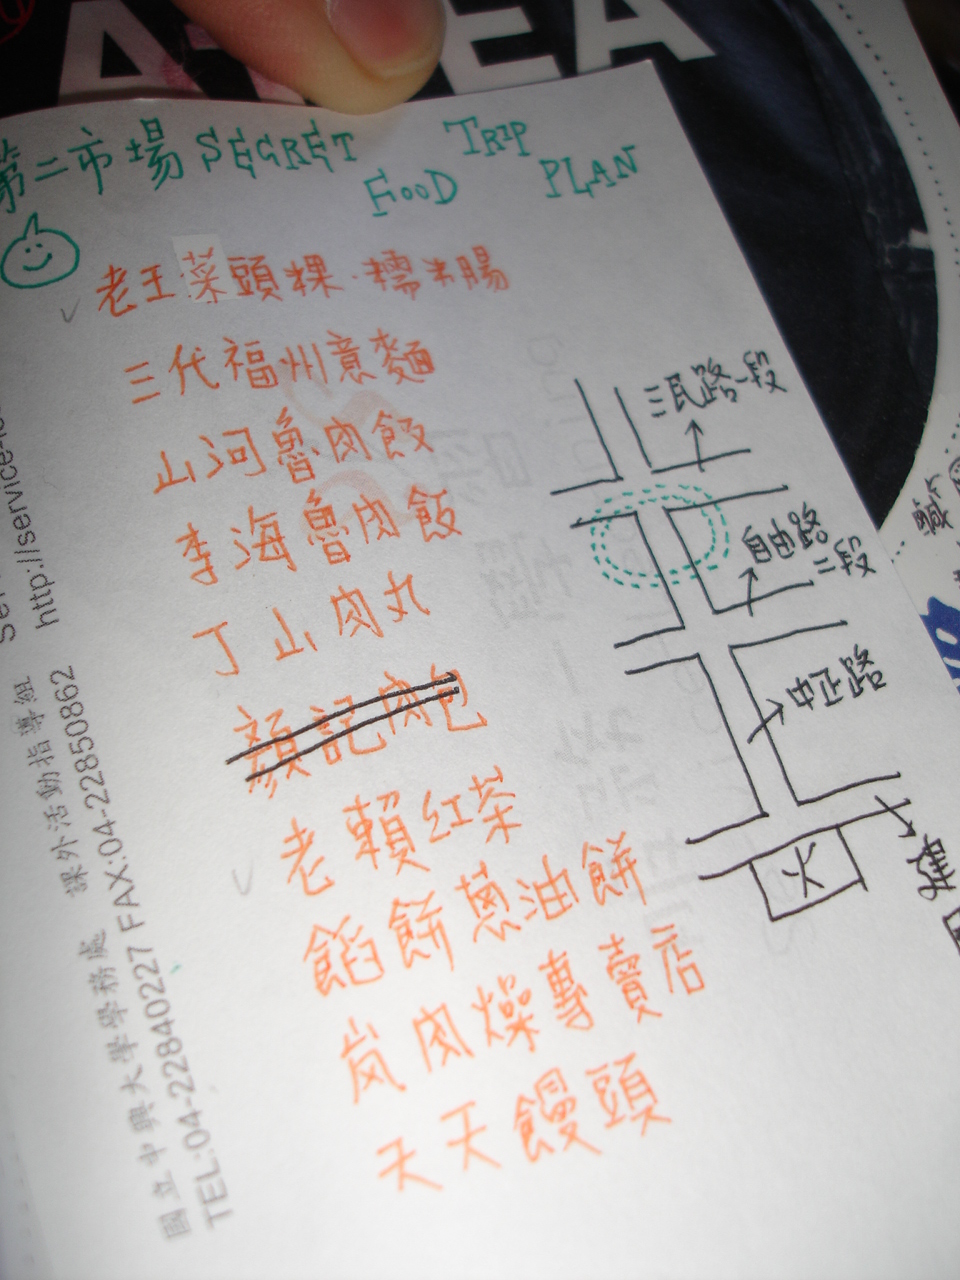 第二市場 SECRET TRIP
FOOD PLAN
老王菜頭粿·糯米腸
三代福州意麵
山河魯肉飯
李海魯肉飯
丁山肉丸
顏記肉包
老賴紅茶
餡餅蔥油餅
嵐肉燥專賣店
天天饅頭
三民路一段
自由路二段
中正路
建國
火
http://service
課外活動指導組
FAX:04-22850862
國立中興大學學務處
TEL:04-22840227